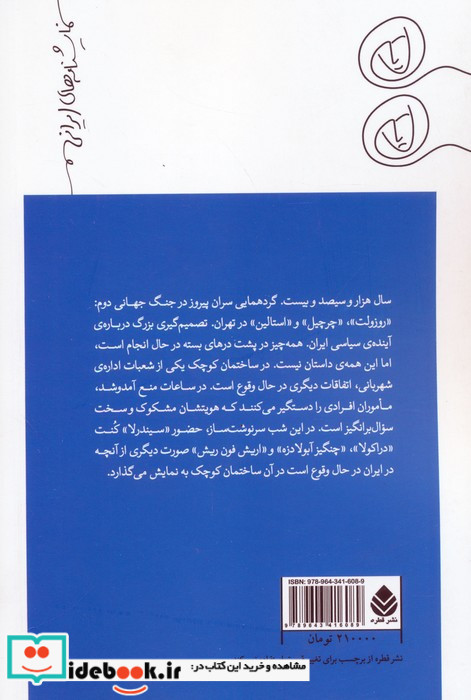 نمایشنامه‌های ایرانی
سال هزار و سیصد و بیست. گردهمایی سران پیروز در جنگ جهانی دوم:
«روزولت»، «چرچیل» و «استالین» در تهران. تصمیم‌گیری بزرگ درباره‌ی
آینده‌ی سیاسی ایران. همه‌چیز در پشت درهای بسته در حال انجام است،
اما این همه‌ی داستان نیست. در ساختمان کوچک یکی از شعبات اداره‌ی
شهربانی، اتفاقات دیگری در حال وقوع است. در ساعات منع آمدوشد،
مأموران افرادی را دستگیر می‌کنند که هویتشان مشکوک و سخت
سؤال‌برانگیز است. در این شب سرنوشت‌ساز، حضور «سیندرلا» کُنت
«دراکولا»، «چنگیز آبولادزه» و «اریش فون ریش» صورت دیگری از آنچه
در ایران در حال وقوع است در آن ساختمان کوچک به نمایش می‌گذارد.
ISBN: 978-964-341-608-9
9 789643 416089
نشر قطره
۲۱۰۰۰۰ تومان
نشر قطره از برچسب برای تغییر
مشاهده و خرید این کتاب در:
iidebook.ir